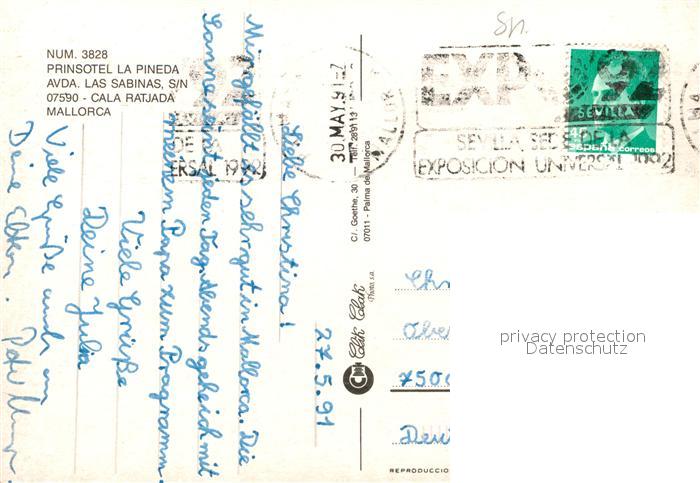 NUM. 3828
PRINSOTEL LA PINEDA
AVDA. LAS SABINAS, S/N
07590 - CALA RATJADA
MALLORCA
27.5.91
Liebe Christina!
Mir gefällt es sehr gut in Mallorca. Die
Sonne scheint jeden Tag. Abends gehe ich mit
meinem Papa zum Programm.
Viele Grüße
Deine Julia
Viele Grüße auch an
Deine Eltern.
Clik Clak
Photo, s.a.
C/. Goethe, 30 - Telf. 289113
07011 - Palma de Mallorca
REPRODUCCIO
30.MAY.91
MALLOR
DE LA
ERSAL 1992
EXPO
SEVILLA
SEVILLA SEDE DE LA
EXPOSICION UNIVERSAL 1992
españa correos
Chr
Obe
7500
Deu
privacy protection
Datenschutz